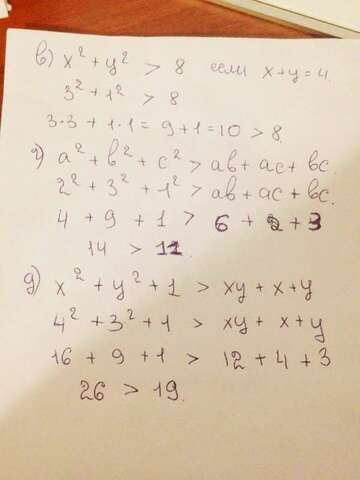 в) x² + y² > 8 если x+y=4.
3² + 1² > 8
3·3 + 1·1 = 9+1=10 > 8.
г) a² + b² + c² > ab + ac + bc.
2² + 3² + 1² > ab + ac + bc.
4 + 9 + 1 > 6 + 2 + 3
14 > 11.
д) x² + y² + 1 > xy + x + y
4² + 3² + 1 > xy + x + y
16 + 9 + 1 > 12 + 4 + 3
26 > 19.